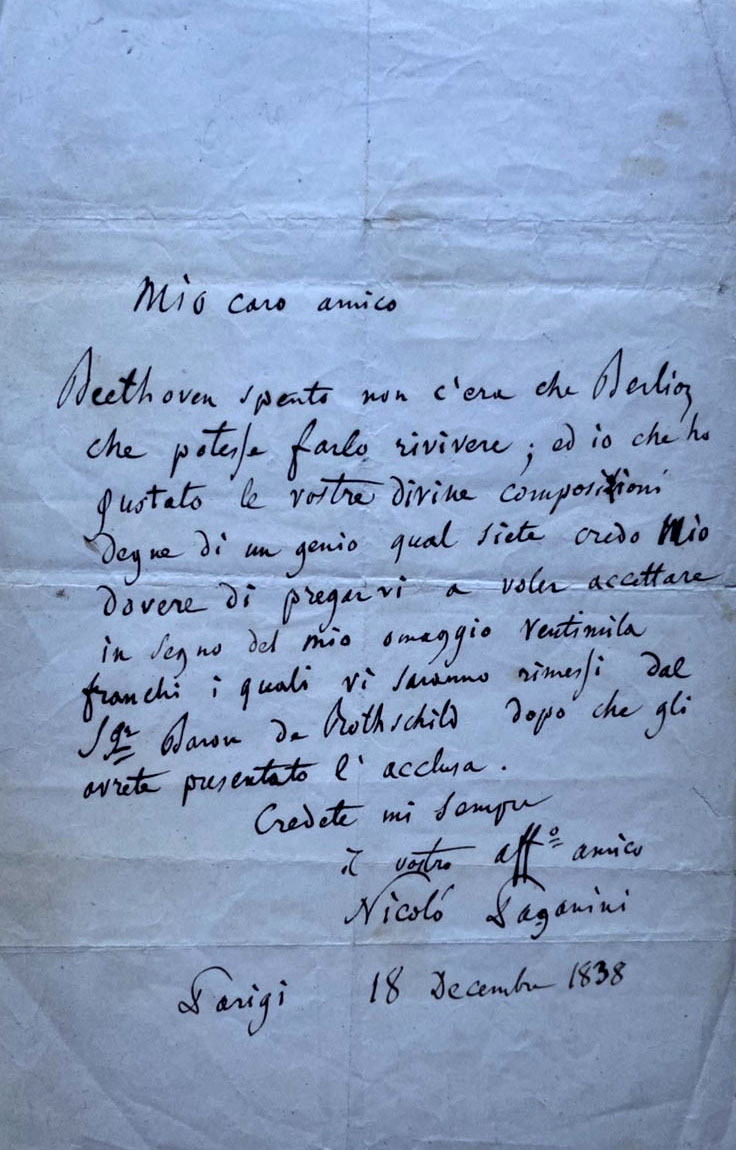 Mio caro amico
Beethoven spento non c'era che Berlioz
che potesse farlo rivivere; ed io che ho
gustato le vostre divine composizioni
degne di un genio qual siete credo mio
dovere di pregarvi a voler accettare
in segno del mio omaggio ventimila
franchi i quali vi saranno rimessi dal
Sgr Baron de Rothschild dopo che gli
avrete presentato l'acclusa.
Credete mi sempre
il vostro affo amico
Nicoló Paganini
Parigi 18 Decembre 1838